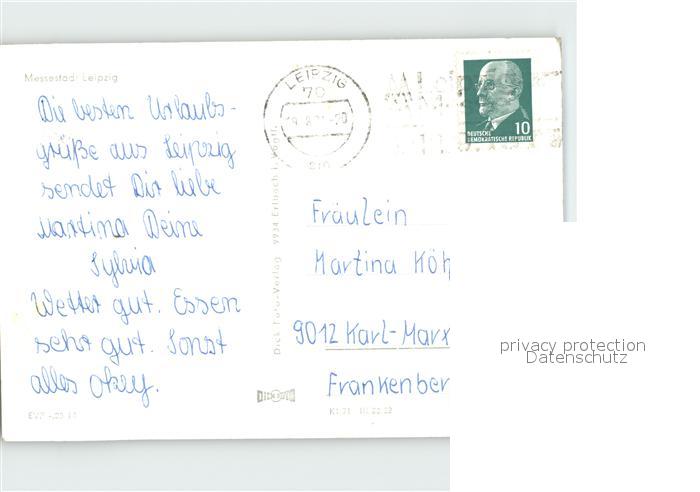 Messestadt Leipzig
Die besten Urlaubs-
grüße aus Leipzig
sendet Dir liebe
Martina Deine
Sylvia
Wetter gut. Essen
sehr gut. Sonst
alles okey.
LEIPZIG
70
DEUTSCHE
DEMOKRATISCHE REPUBLIK
10
Dick Foto-Verlag 9934 Erlbach i. Vogtl.
Fräulein
Martina Köh
9012 Karl-Marx
Frankenber
privacy protection
Datenschutz